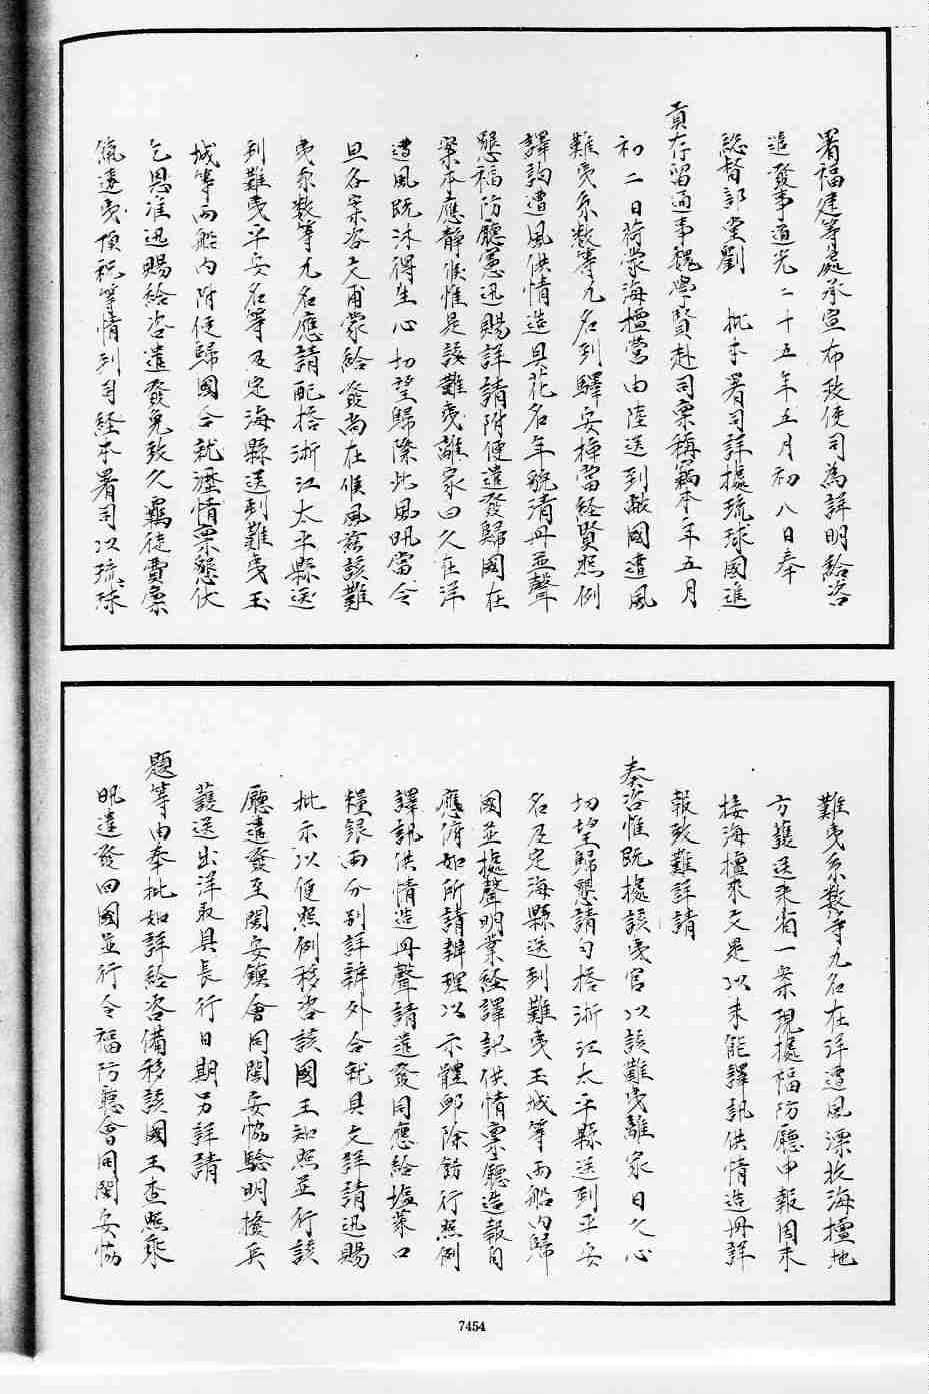 署福建等處承宣布政使司為詳明給咨
遣發事道光二十五年五月初八日奉
総督部堂劉　批本署司詳據琉球國進
貢存留通事魏學賢赴司稟稱竊本年五月
初二日荷蒙海壇營由陸送到敝國遭風
難夷糸数等九名到驛安挿當経賢照例
譯詢遭風供情造具花名年貌清冊並聲
懇福防廳憲迅賜詳請附便遣發歸國在
案本應静候惟是該難夷離家日久在洋
遭風既沐得生心切望歸際此風帆當令
且各案咨文甫蒙給發尚在候風茲該難
夷糸数等九名應請配搭浙江太平縣送
到難夷平安名等及定海縣送到難夷玉
城等両船内附便歸國合就瀝情稟懇伏
乞恩准迅賜給咨遣發免致久羈徒費稟
俬遠夷頂祝等情到司経本署司以琉球
難夷糸数等九名在洋遭風漂收海壇地
方護送来省一案現據福防廳申報因未
接海壇来文是以未能譯訊供情造冊詳
報致難詳請
奏咨惟既據該夷官以該難夷離家日久心
切望歸懇請勻搭浙江太平縣送到平安
名及定海縣送到難夷玉城等両船内歸
國並據聲明業経譯訊供情稟廳造報自
應俯如所請辦理以示體邮除飭行照例
譯訊供情造冊聲請遣發同應給塩菜口
糧銀両分别詳辦外合就具文詳請迅賜
批示以便照例移咨該國王知照並行該
廳遣發至閩安鎮會同閩安協驗明撥兵
護送出洋取具長行日期另詳請
題等由奉批如詳給咨備移該國王查照乘
帆遣發回國並行令福防廳會同閩安協
7454